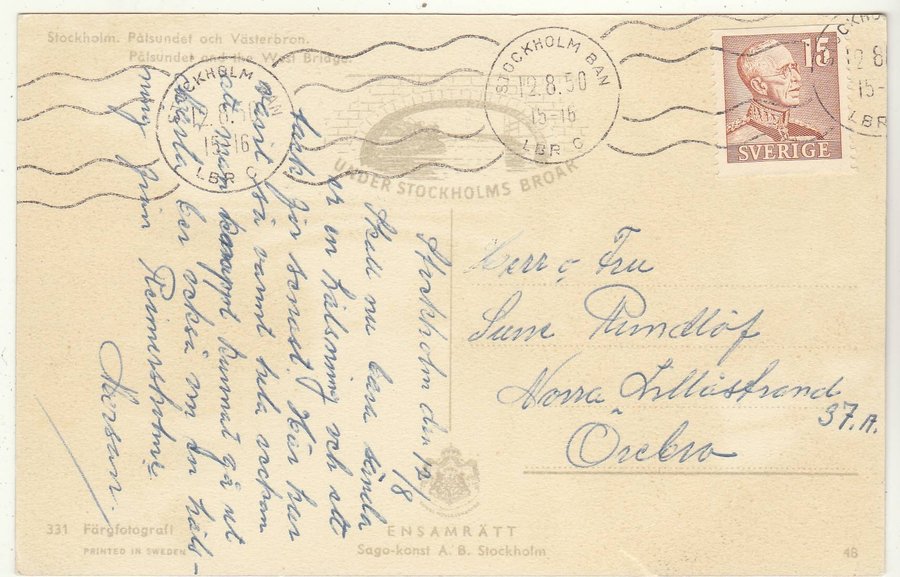 Stockholm. Pålsundet och Västerbron.
Pålsundet and the West Bridge.
STOCKHOLM BAN
12.8.50
15-16
LBR C
STOCKHOLM BAN
12.8.50
15-16
LBR C
STOCKHOLM
12.8
15-
LBR
15
SVERIGE
UNDER STOCKHOLMS BROAR
Stockholm den 12/8
Skall nu bara sända
er en hälsning och ett
tack för senast. Här har
varit så varmt hela veckan
att man knappt kunnat gå ut
ber också om en häls-
ning från Reimersholme
Herr o Fru
Sune Rundlöf
Norra Lillåstrand
37. A.
Örebro
331 Färgfotografi
PRINTED IN SWEDEN
ENSAMRÄTT
Sago-konst A. B. Stockholm
48